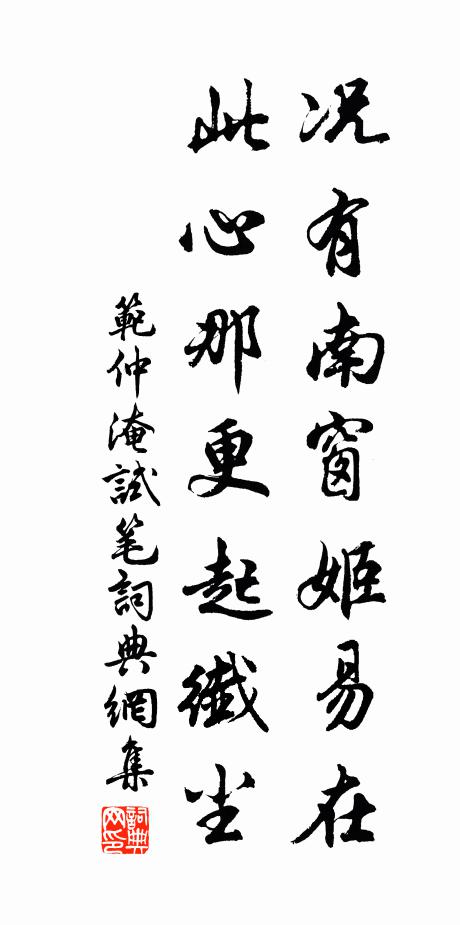 况有南窗姬易在
此心那更起纖尘
範仲淹試笔詞典網集
詞典网印